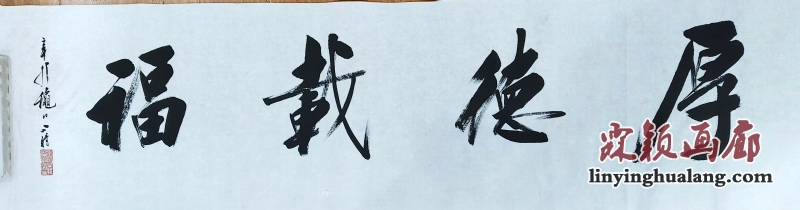 厚德載福
霖颖画廊
linyinghualang.com